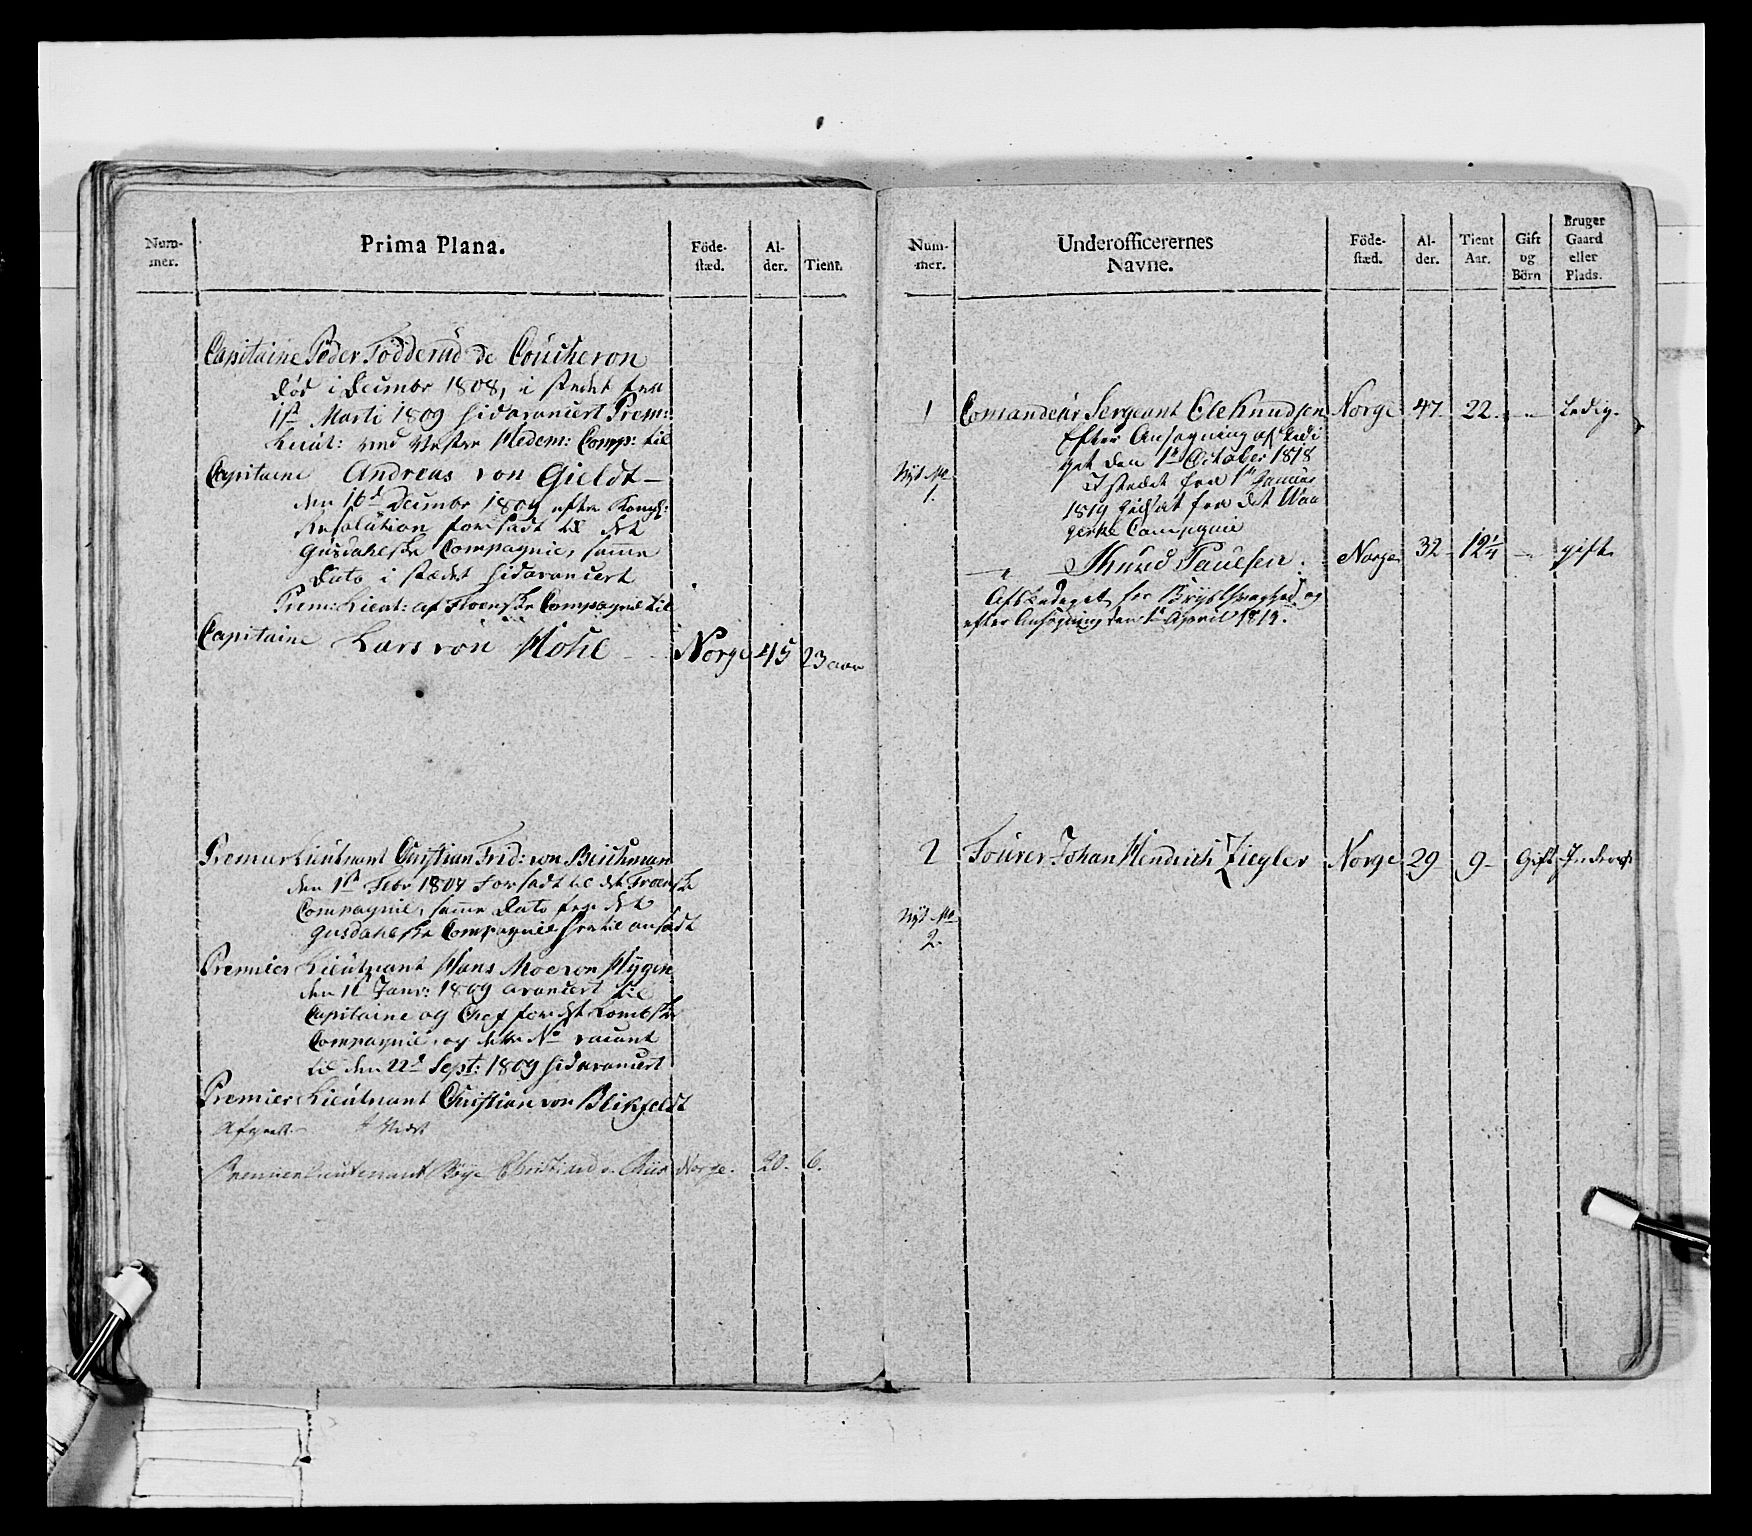 Num-
mer.
Prima Plana.
Föde-
stæd.
Al-
der.
Tient.
Capitaine Peder Fodderud de Coucheron
død i Decembr 1808, i stedet fra
1st Marti 1809 hidavancert Prem:
Lieut: ved Vester Comp: til
Capitaine Andreas von Gieldt
den 16d Decembr 1809 efter Kongl:
Resolution forsadt til det
Gusdahlske Compagnie, samme
Dato i stædet hidavancert
Prem: Lieut: af Froenske Compagnie til
Capitaine Lars von Mohl Norge 45 23 aar
Premier Lieutnant Christian Frid: von Beichman
den 1st Febr 1807 forsadt til det Froenske
Compagnie, samme Dato fra det
Gusdahlske Compagnie hertil ansadt
Premier Lieutnant Hans Moe von Hygen
den Janr: 1809 avancert til
Capitaine og Chef for det Lomske
Compagnie, og dette No vacant
til den 22d Sept: 1809 hidavancert
Premier Lieutnant Christian von Blikfeldt
Premier Lieutenant Christian Norge. 20. 6.
Num-
mer.
Underofficerernes
Navne.
Föde-
stæd.
Al-
der.
Tient
Aar.
Gift
og
Börn
Bruger
Gaard
eller
Plads.
1 Comandeur Sergeant Ole Knudsen Norge 47 22 - Ledig.
Efter Ansøgning afskedi
get den 1st October 1818
I stædet fra 1st Januar
1819 hidsat fra det Waa
gerske Compagnie
Nyt No
1.
Knud Paulsen Norge 32 12¼ - gift
Afskediget for Brystsvaghed og
efter Ansøgning den 1st April 1819.
2 Fourer Johan Hendrich Ziegler Norge 29 9 Gift
Nyt No
2.